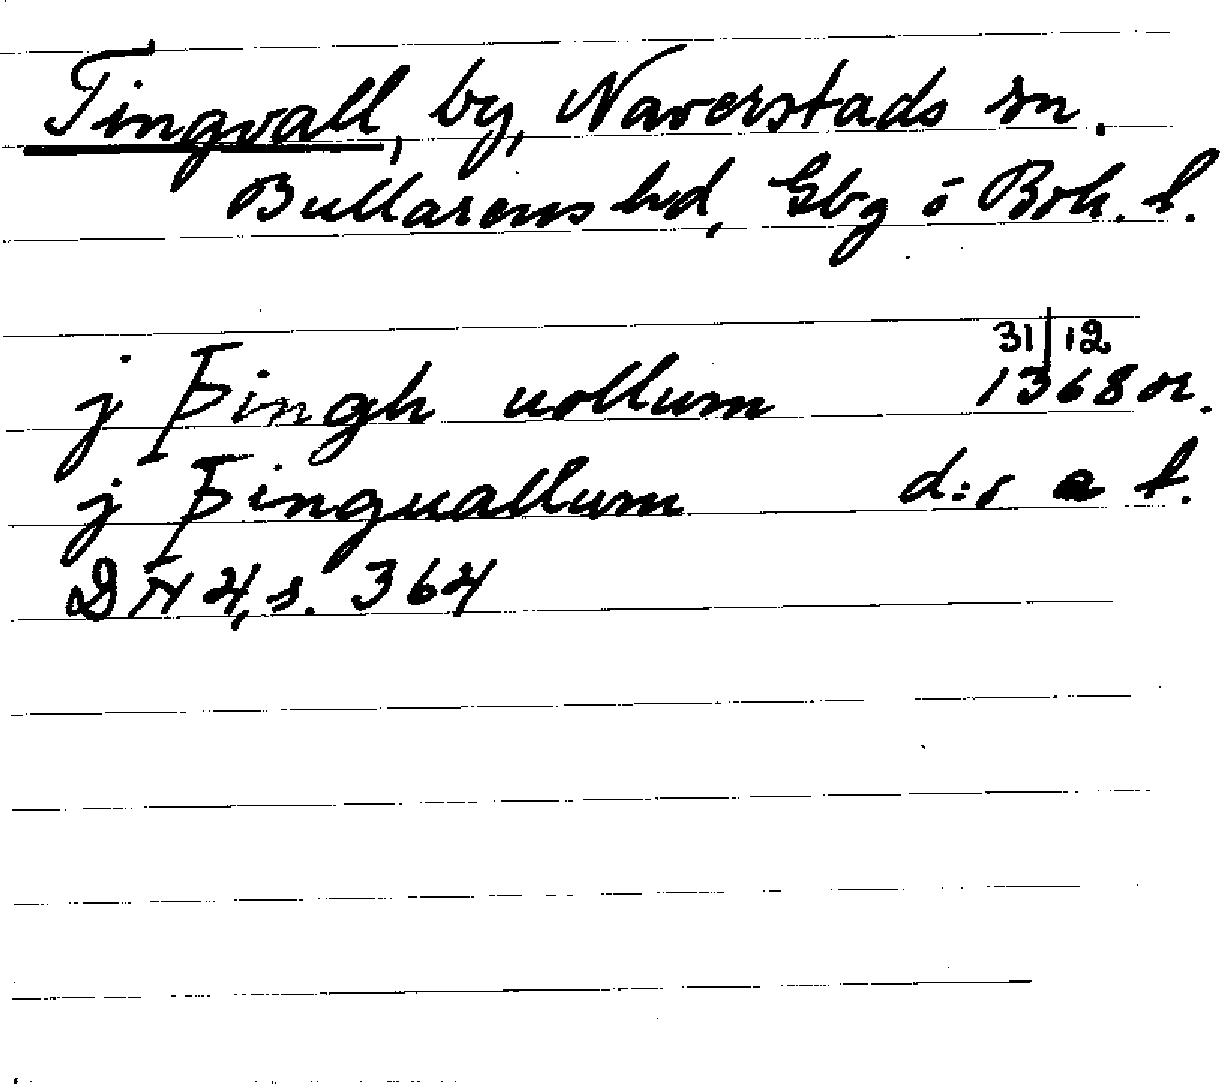 Tingvall, by, Naverstads sn.
Bullarens hd, Gbg o Boh. l.
31/12
j Þingh uollum 1368 or.
j Þinguallum d:o a t.
DN 4, s. 364